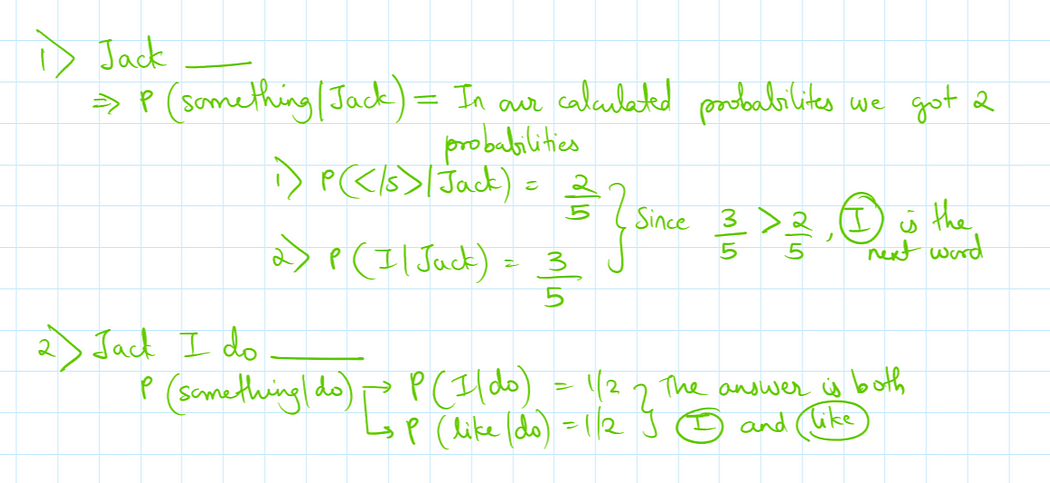 1) Jack ____
⇒ P(something|Jack) = In our calculated probabilites we got 2
probabilities
1) P(</s>|Jack) = 2/5
2) P(I|Jack) = 3/5 } Since 3/5 > 2/5, I is the
next word
2) Jack I do ____
P(something|do) → P(I|do) = 1/2 } The answer is both
↳ P(like|do) = 1/2 } I and like